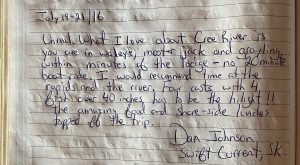 July 19-23/16
What I love about Cree River is
you are in walleye, master jack and grayling
within minutes of the lodge - no 20 minute
boat ride. I would recommend time at the
rapids and the river. Four casts with 4
fish over 40 inches has to be the hilight!!
The amazing food and shore-side lunches
topped off the trip.
Dan Johnson
Swift Current, SK